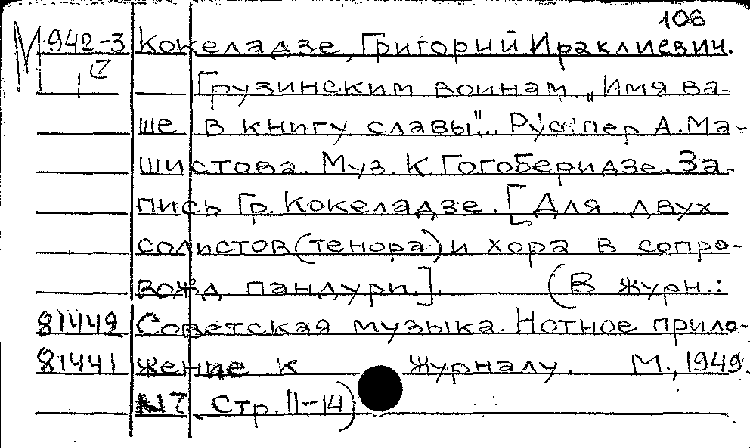 106
М 942-3 Кокеладзе, Григорий Ираклиевич.
Грузинским воинам „Имя ва-
ше в книгу славы". Рус.пер А.Ма-
шистова. Муз. К Гогоберидзе. За-
пись Гр. Кокеладзе. [Для двух
солистов (тенора) и хора в сопро-
вожд пандури.]. (В журн.:
81449 Советская музыка. Нотное прило-
81441 жение к журналу. М., 1949.
№7 Стр. 11-14)